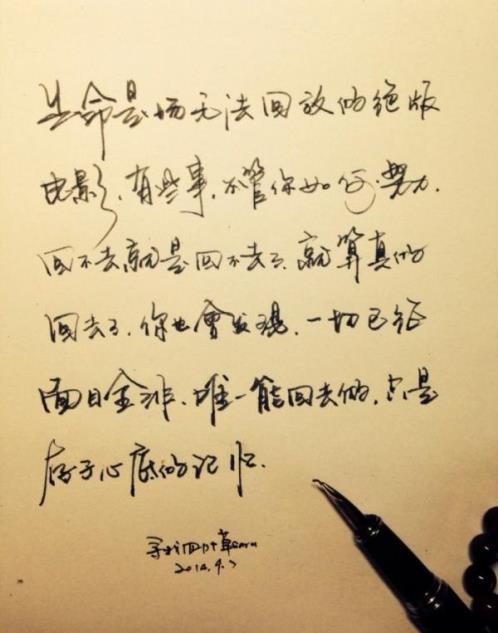 生命是场无法回放的绝版
电影，有些事，不管你如何努力，
回不去就是回不去了，就算真的
回去了，你也會发现，一切已经
面目全非，唯一能回去的，只是
存于心底的记忆．
2014.9.7